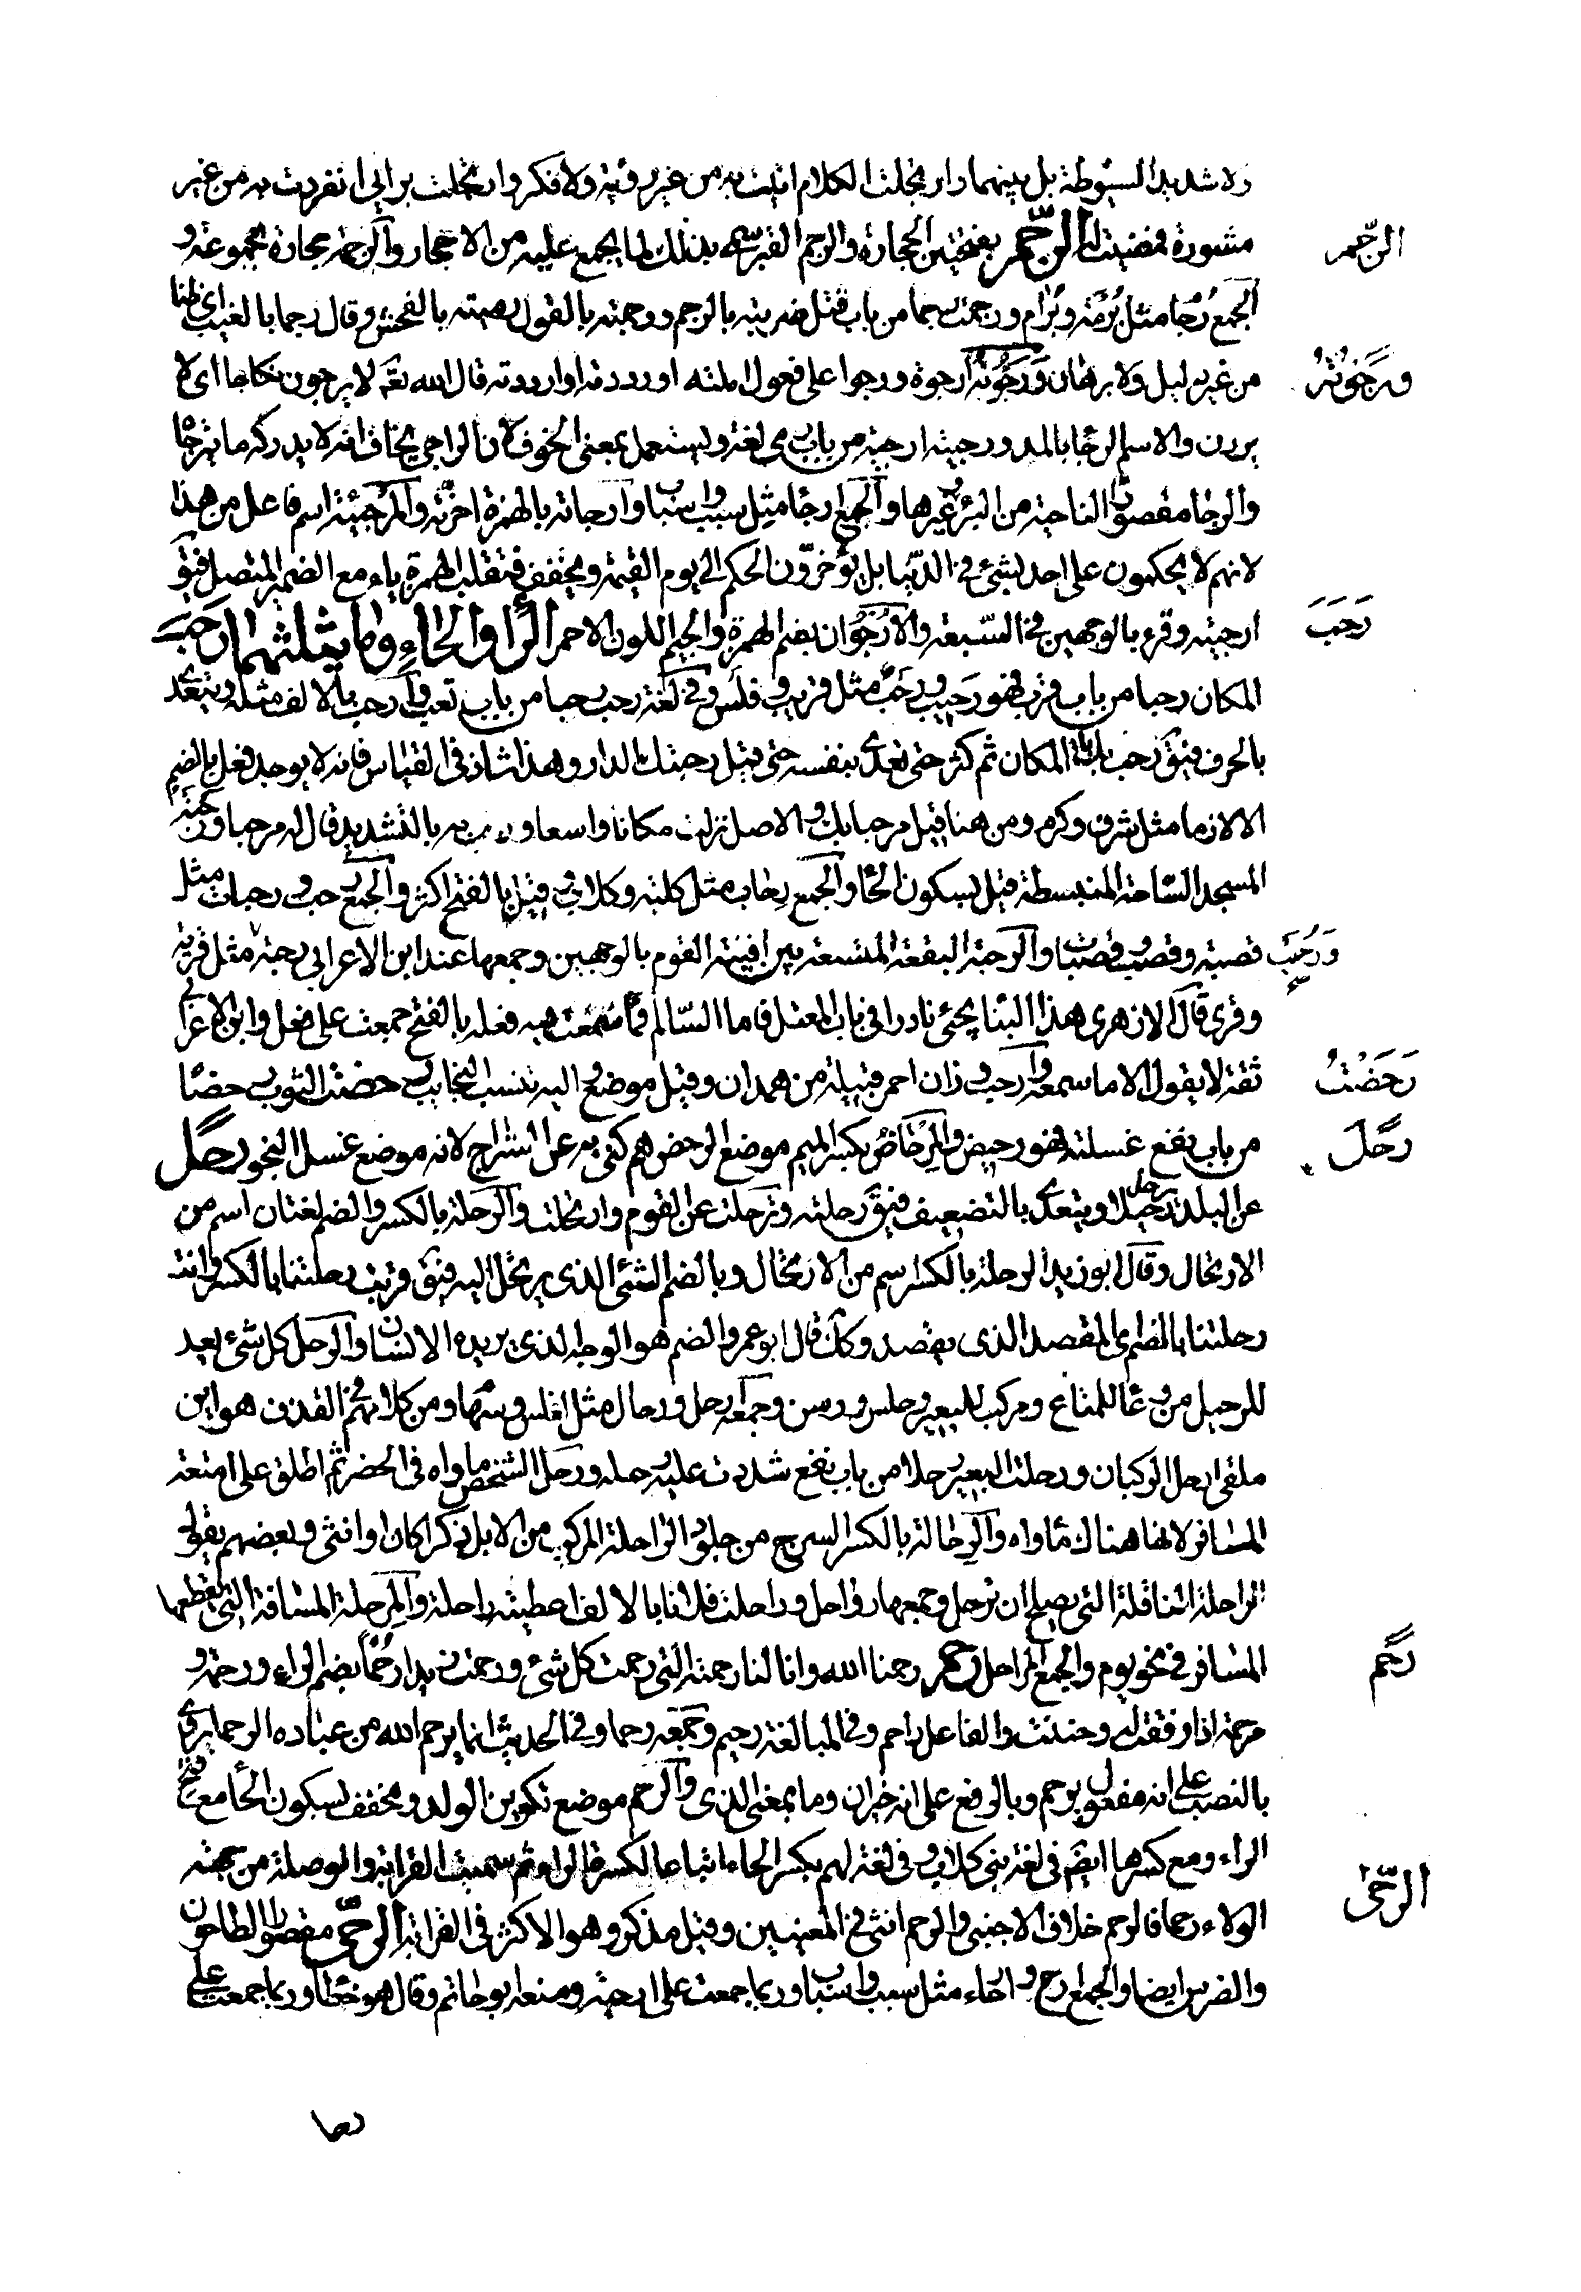 ولا شديد السبوطة بل بينهما وارتجلت الكلام اتيت به من غير روية ولا فكر وارتجلت برايي انفردت به من غير
الرجم
مشورة فمضيت له الرجم بفتحتين الحجارة والرجم القبر سمى بذلك لما يجمع عليه من الاحجار والرجمة حجارة مجموعة و
الجمع رجام مثل برمة وبرام ورجمته رجما من باب قتل ضربته بالرجم ورجمته بالقول رميته بالفحش وقال رجما بالغيب اى ظنا
ورجوته
من غير دليل ولا برهان ورجوته ارجوه ورجوا على فعول املته او اردته قال الله تعالى لا يرجون نكاحا اى لا
يريدون والاسم الرجا بالمد ورجيته ارجيه من باب رمى لغة ويستعمل بمعنى الخوف لان الراجى يخاف انه لا يدرك ما يترجاه
والرجا مقصورا الناحية من البئر وغيرها والجمع ارجا مثل سبب واسباب وارجاته بالهمزة اخرته والمرجئة اسم فاعل من هذا
لانهم لا يحكمون على احد بشئ فى الدنيا بل يؤخرون الحكم الى يوم القيمة ويخفف فتقلب الهمزة ياء مع الضمير المتصل فيق
رحب
ارجيته وقرء بالوجهين فى السبعة والارجوان بضم الهمزة والجيم اللون الاحمر الرا والحاء وما يثلثهما رحب
المكان رحبا من باب قرب فهو رحيب ورحب مثل قريب وفلس وفى لغة رحب رحبا من باب تعب وارحب بالالف مثله ويتعدى
بالحرف فيق رحب بك المكان ثم كثر حتى تعدى بنفسه حتى قيل رحبتك الدار وهذا شاذ فى القياس فانه لا يوجد فعل بالضم
الا لازما مثل شرف وكرم ومن هنا قيل مرحبا بك والاصل نزلت مكانا واسعا ورحب به بالتشديد قال له مرحبا ورحبة
المسجد الساحة المنبسطة قيل بسكون الحا والجمع رحاب مثل كلبة وكلاب وقيل بالفتح اكثر والجمع رحب ورحبات مثل
قصبة وقصب وقصبات والرحبة البقعة المتسعة بين افنية القوم بالوجهين وجمعها عند ابن الاعرابى رحبة مثل قرية
وقرى قال الازهرى هذا البنا يجئ نادرا فى باب المعتل فاما السالم فما سمعت فيه فعله بالفتح جمعت على فعل وابن الاعرابى
رحضت
ثقة لا يقول الا ما سمعه وارحب وزان احمر قبيلة من همدان وقيل موضع واليه تنسب النجايب رحضت الثوب رحضا
رحل
من باب نفع غسلته فهو رحيض والمرحاض بكسر الميم موضع الرحض ثم كنى به عن المستراح لانه موضع غسل النجو رحل
عن البلد رحيلا ويتعدى بالتضعيف فيق رحلته وترحلت عن القوم وارتحلت والرحلة بالكسر والضم لغتان اسم من
الارتحال وقال ابو زيد الرحلة بالكسر اسم من الارتحال وبالضم الشئ الذى يرتحل اليه فيق قربت رحلتنا بالكسر وانت
رحلتنا بالضم اى المقصد الذى يقصد وكك قال ابو عمرو الضم هو الوجه الذى يريده الانسان والرحل كل شئ يعد
للرحيل من وعا للمتاع ومركب للبعير وحلس ورسن وجمعه ارحل ورحال مثل افلس وسهام ومن كلامهم فى القذف هو ابن
ملقى ارحل الركبان ورحلت البعير رحلا من باب نفع شددت عليه رحله ورحل الشخص ماواه فى الحضر ثم اطلق على امتعة
المسافر لانها هناك ماواه والرحالة بالكسر السرج من جلود والراحلة المركب من الابل ذكرا كان او انثى وبعضهم يقول
الراحلة الناقة التى يصلح ان ترحل وجمعها رواحل وارحلت فلانا بالالف اعطيته راحلة والمرحلة المسافة التى يقطعها
رحم
المسافر فى نحو يوم والجمع المراحل رحم رحمنا الله وانا لنا رحمته التى رحمت كل شئ ورحمت زيدا رحما بضم الراء ورحمة و
مرحمة اذا رفقت له وحننت والفاعل راحم وفى المبالغة رحيم وجمعه رحما وفى الحديث انما يرحم الله من عباده الرحما يروى
بالنصب على انه مفعول يرحم وبالرفع على انه خبر ان وما بمعنى الذى والرحم موضع تكوين الولد ويخفف بسكون الحا مع فتح
الراء ومع كسرها ايضا فى لغة بنى كلاب وفى لغة لهم بكسر الحاء اتباعا لكسرة الراء ثم سميت القرابة والوصلة من جهة
الرحى
الولاء رحما فالرحم خلاف الاجنبى والرحم انثى فى المعنيين وقيل مذكر وهو الاكثر فى القرابة الرحى مقصور الطاحون
والضرس ايضا والجمع ارح وارحاء مثل سبب واسباب وربما جمعت على ارحية ومنعه ابو حاتم وقال هو خطا وربما جمعت على